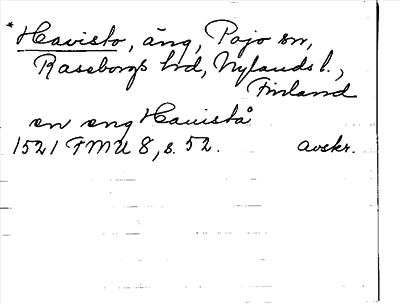 * Havisto, äng, Pojo sn,
Raseborgs hd, Nylands l.,
Finland
en eng Hauistå
1521 FMU 8, s. 52. avskr.